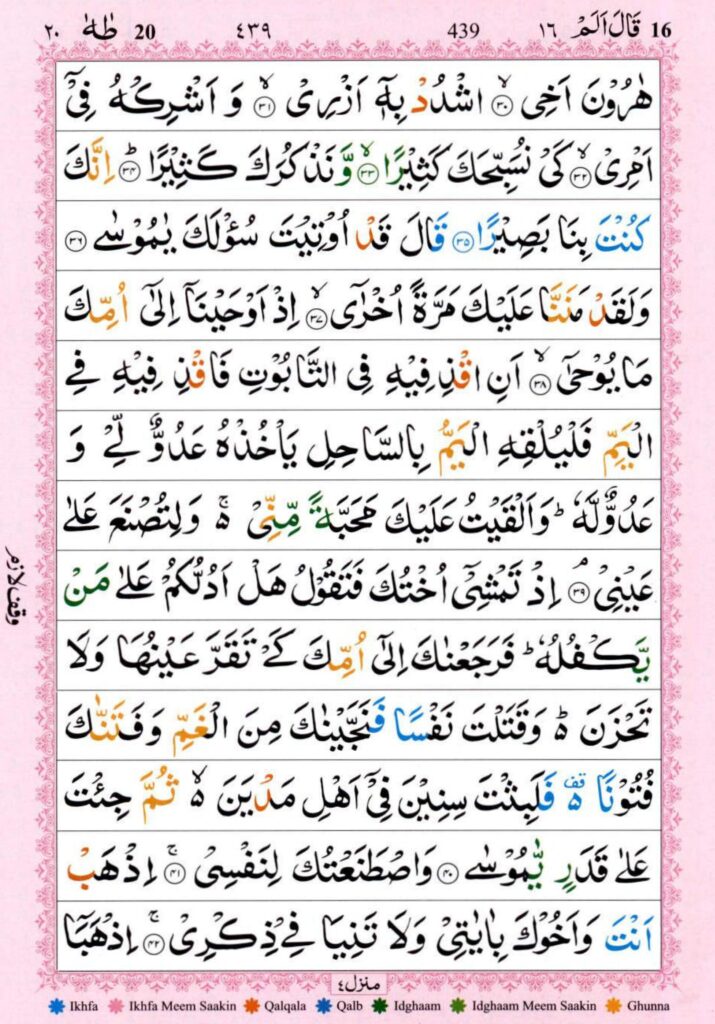 16 قَالَ اَلَمْ ١٦ 439 ٤٣٩ 20 طٰهٰ ٢٠
هٰرُوْنَ اَخِی ۙ﴿٣٠﴾ اشْدُدْ بِهٖۤ اَزْرِیْ ۙ﴿٣١﴾ وَ اَشْرِكْهُ فِیْۤ
اَمْرِیْ ۙ﴿٣٢﴾ كَیْ نُسَبِّحَكَ كَثِیْرًا ۙ﴿٣٣﴾ وَّنَذْكُرَكَ كَثِیْرًا ؕ﴿٣٤﴾ اِنَّكَ
كُنْتَ بِنَا بَصِیْرًا ﴿٣٥﴾ قَالَ قَدْ اُوْتِیْتَ سُؤْلَكَ یٰمُوْسٰی ﴿٣٦﴾
وَلَقَدْ مَنَنَّا عَلَیْكَ مَرَّةً اُخْرٰۤی ۙ﴿٣٧﴾ اِذْ اَوْحَیْنَاۤ اِلٰۤی اُمِّكَ
مَا یُوْحٰۤی ۙ﴿٣٨﴾ اَنِ اقْذِفِیْهِ فِی التَّابُوْتِ فَاقْذِفِیْهِ فِی
الْیَمِّ فَلْیُلْقِهِ الْیَمُّ بِالسَّاحِلِ یَاْخُذْهُ عَدُوٌّ لِّیْ وَ
عَدُوٌّ لَّهٗ ؕ وَاَلْقَیْتُ عَلَیْكَ مَحَبَّةً مِّنِّیْ ۚ۬ وَلِتُصْنَعَ عَلٰی
عَیْنِیْ ۘ﴿٣٩﴾ اِذْ تَمْشِیْۤ اُخْتُكَ فَتَقُوْلُ هَلْ اَدُلُّكُمْ عَلٰی مَنْ
یَّكْفُلُهٗ ؕ فَرَجَعْنٰكَ اِلٰۤی اُمِّكَ كَیْ تَقَرَّ عَیْنُهَا وَلَا
تَحْزَنَ ؕ۬ وَقَتَلْتَ نَفْسًا فَنَجَّیْنٰكَ مِنَ الْغَمِّ وَفَتَنّٰكَ
فُتُوْنًا ۫۬ فَلَبِثْتَ سِنِیْنَ فِیْۤ اَهْلِ مَدْیَنَ ۙ۬ ثُمَّ جِئْتَ
عَلٰی قَدَرٍ یّٰمُوْسٰی ﴿٤٠﴾ وَاصْطَنَعْتُكَ لِنَفْسِیْ ۚ﴿٤١﴾ اِذْهَبْ
اَنْتَ وَاَخُوْكَ بِاٰیٰتِیْ وَلَا تَنِیَا فِیْ ذِكْرِیْ ۚ﴿٤٢﴾ اِذْهَبَاۤ
وقف لازم
منزل٤
Ikhfa Ikhfa Meem Saakin Qalqala Qalb Idghaam Idghaam Meem Saakin Ghunna